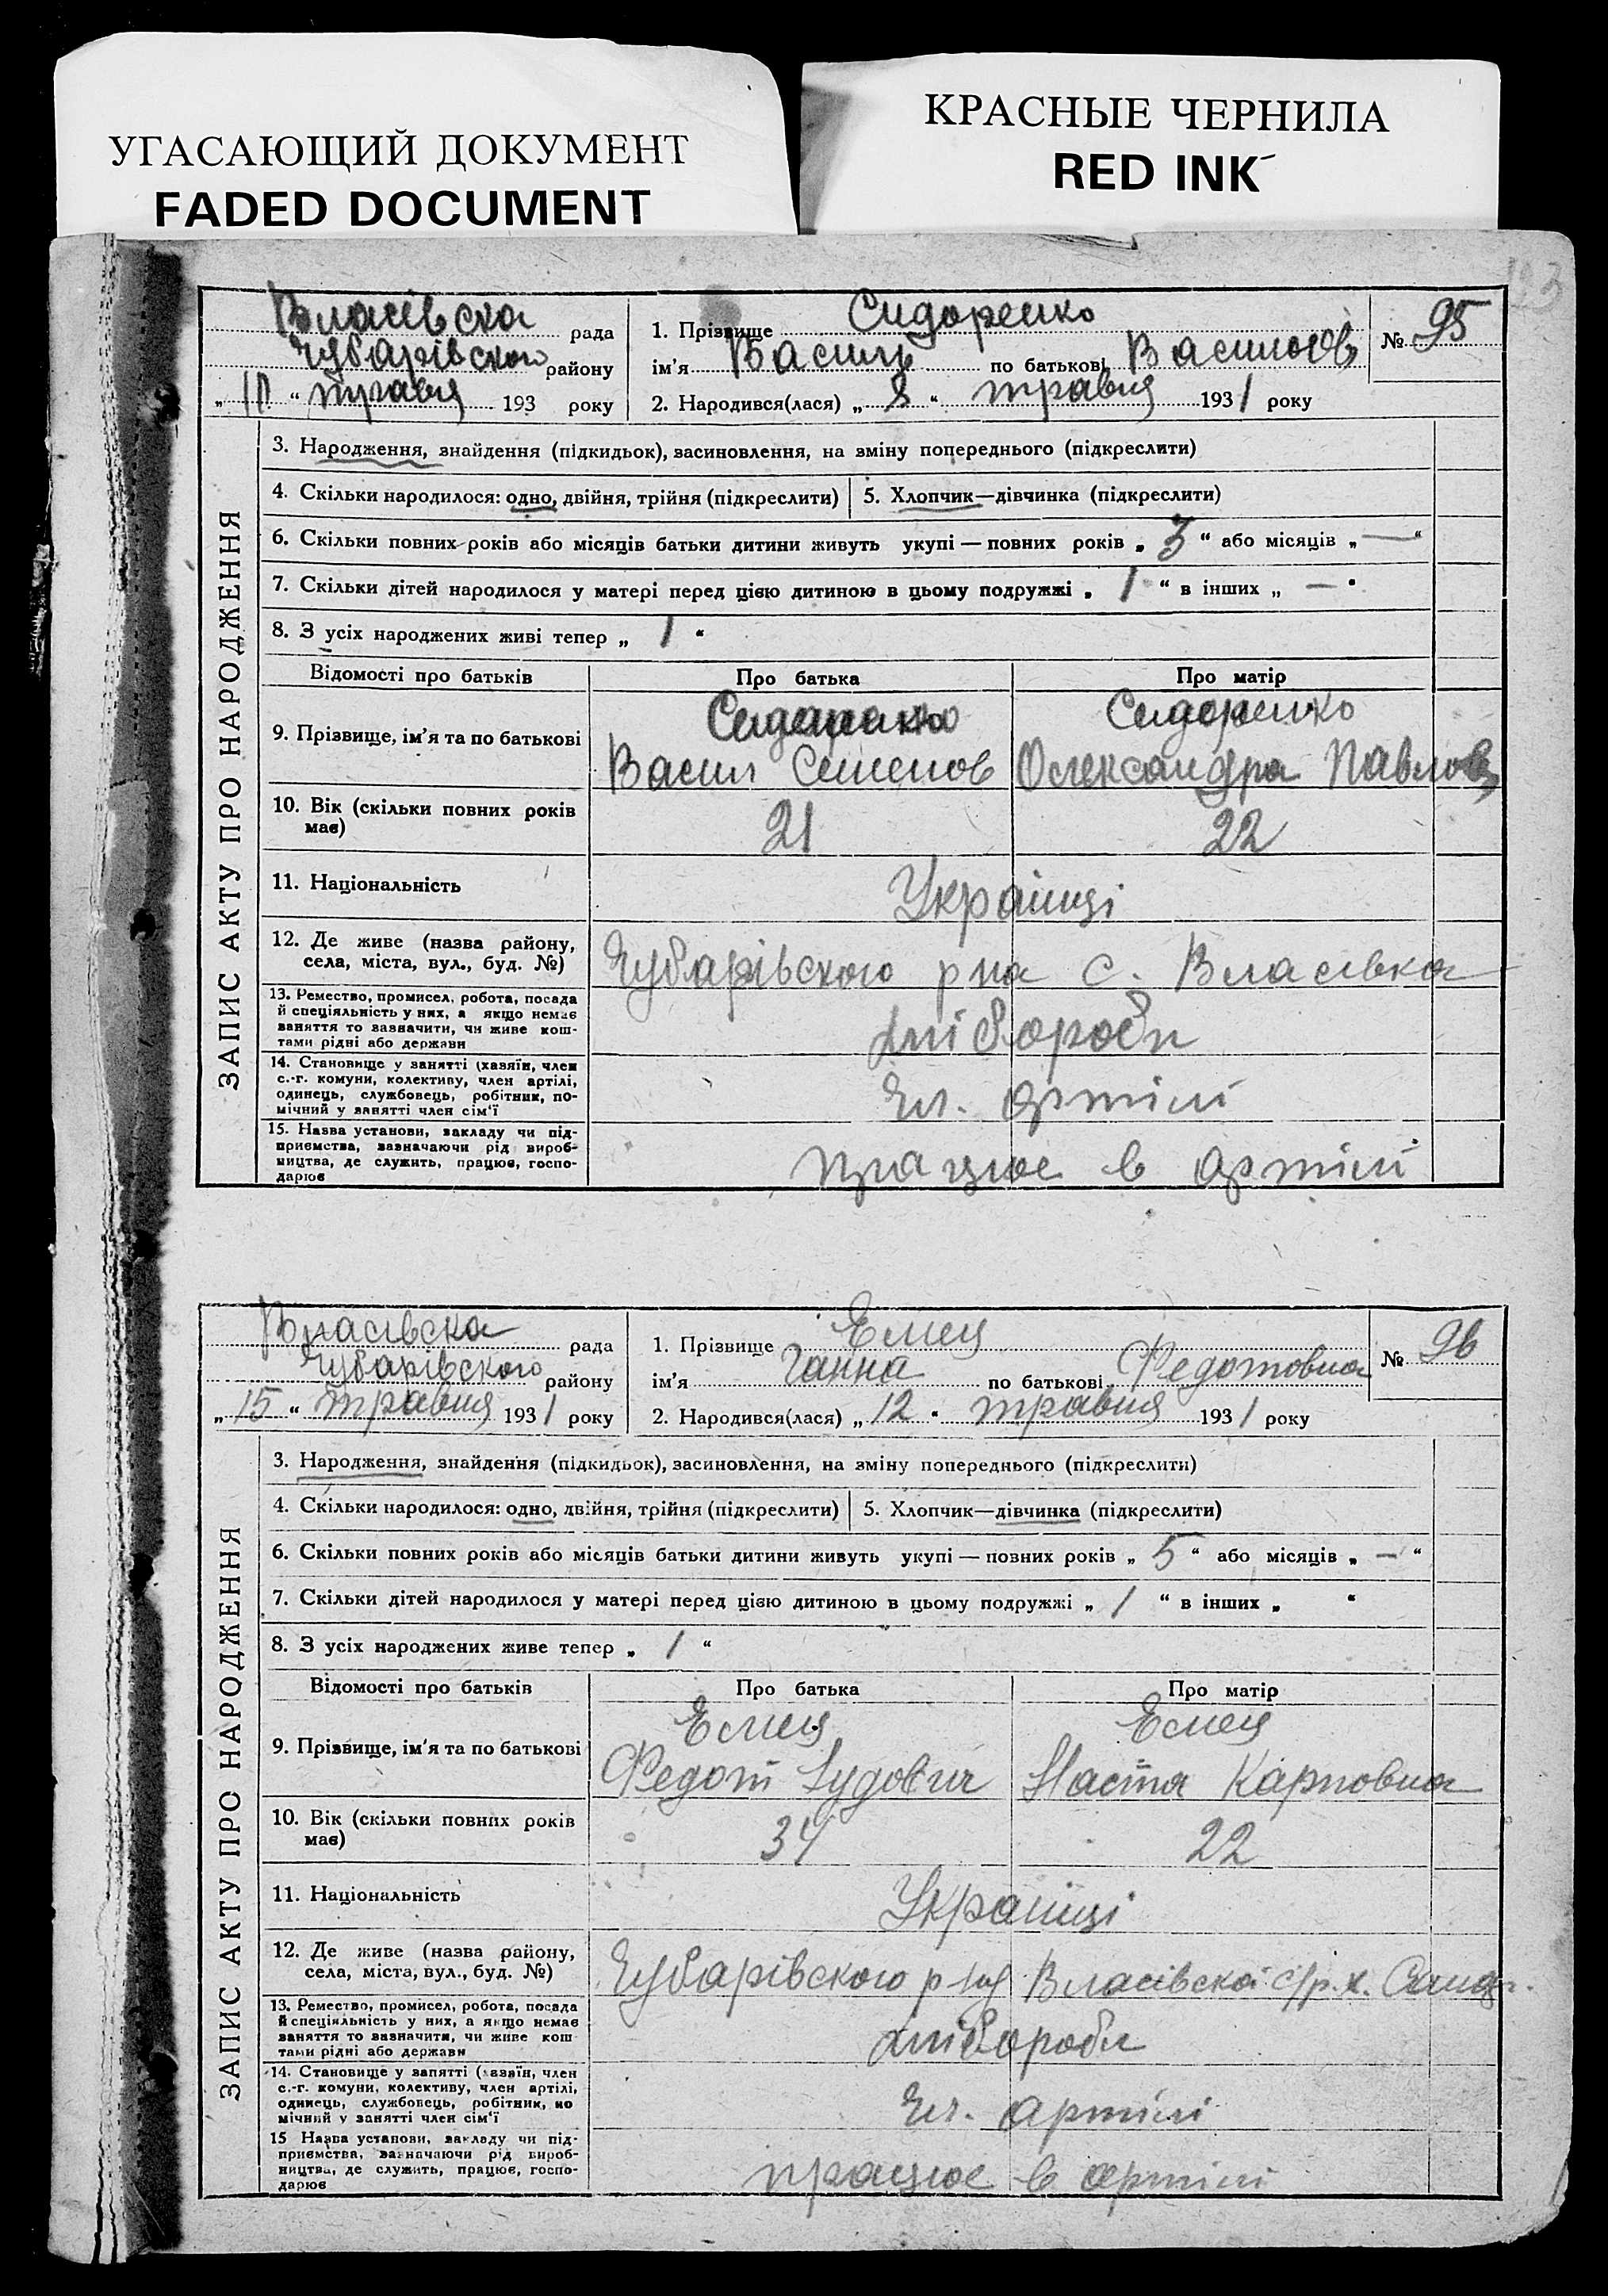 УГАСАЮЩИЙ ДОКУМЕНТ
FADED DOCUMENT
КРАСНЫЕ ЧЕРНИЛА
RED INK
Власівска рада
Чубарівского району
„ “ травня 193 року
1. Прізвище Сидоренко
ім'я Василь по батькові Васильов
№ 95
2. Народився(лася) „ 8 “ травня 1931 року
ЗАПИС АКТУ ПРО НАРОДЖЕННЯ
3. Народження, знайдення (підкидьок), засиновлення, на зміну попереднього (підкреслити)
4. Скільки народилося: одно, двійня, трійня (підкреслити)
5. Хлопчик—дівчинка (підкреслити)
6. Скільки повних років або місяців батьки дитини живуть укупі — повних років „ 3 “ або місяців „ — “
7. Скільки дітей народилося у матері перед цією дитиною в цьому подружжі „ 1 “ в інших „ — “
8. З усіх народжених живі тепер „ 1 “
Відомості про батьків
Про батька
Про матір
9. Прізвище, ім'я та по батькові
Сидоренко
Васил Семенов
Сидоренко
Олександра Павлов
10. Вік (скільки повних років
має)
21
22
11. Національність
Українці
12. Де живе (назва району,
села, міста, вул., буд. №)
Чубарівского р на с. Власівка
13. Ремество, промисел, робота, посада
й спеціяльність у них, а якщо немає
заняття то зазначити, чи живе кош-
тами рідні або держави
хлібороби
14. Становище у занятті (хазяїн, член
с.-г. комуни, колективу, член артілі,
одинець, службовець, робітник, по-
мічний у занятті член сім'ї
Чл. артілі
15. Назва установи, закладу чи під-
приємства, зазначаючи рід вироб-
ництва, де служить, працює, госпо-
дарює
працює в артілі
Власівска рада
Чубарівского району
„ 15 “ травня 1931 року
1. Прізвище Емец
ім'я Ганна по батькові Федотовна
№ 96
2. Народився(лася) „ 12 “ травня 1931 року
ЗАПИС АКТУ ПРО НАРОДЖЕННЯ
3. Народження, знайдення (підкидьок), засиновлення, на зміну попереднього (підкреслити)
4. Скільки народилося: одно, двійня, трійня (підкреслити)
5. Хлопчик—дівчинка (підкреслити)
6. Скільки повних років або місяців батьки дитини живуть укупі — повних років „ 5 “ або місяців „ — “
7. Скільки дітей народилося у матері перед цією дитиною в цьому подружжі „ 1 “ в інших „ “
8. З усіх народжених живе тепер „ 1 “
Відомості про батьків
Про батька
Про матір
9. Прізвище, ім'я та по батькові
Емец
Федот Іудович
Емец
Настя Карповна
10. Вік (скільки повних років
має)
34
22
11. Національність
Українці
12. Де живе (назва району,
села, міста, вул., буд. №)
Чубарівского р Власівскої с/р. х.
13. Ремество, промисел, робота, посада
й спеціяльність у них, а якщо немає
заняття то зазначити, чи живе кош
тами рідні або держави
хлібороби
14. Становище у занятті (хазяїн, член
с.-г. комуни, колективу, член артілі,
одинець, службовець, робітник, по
мічний у занятті член сім'ї
Чл. артілі
15 Назва установи, закладу чи під-
приємства, зазначаючи рід вироб-
ництва, де служить, працює, госпо-
дарює
працює в артілі